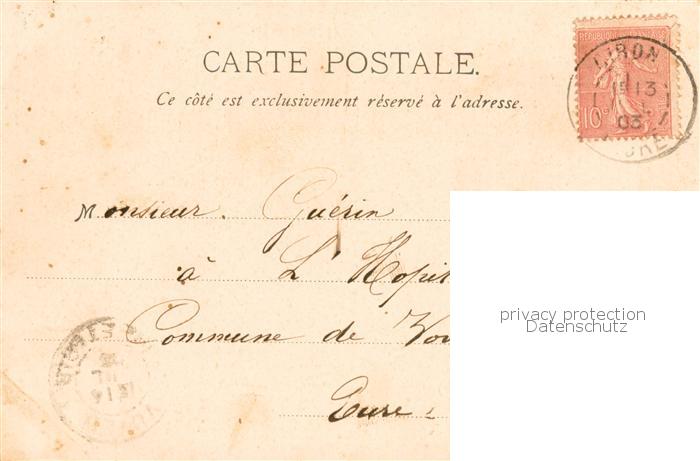 CARTE POSTALE.
Ce côté est exclusivement réservé à l'adresse.
REPUBLIQUE
10c
LIRON
13
03
Monsieur. Guérin
à L'Hopit
Commune de
Eure
privacy protection
Datenschutz